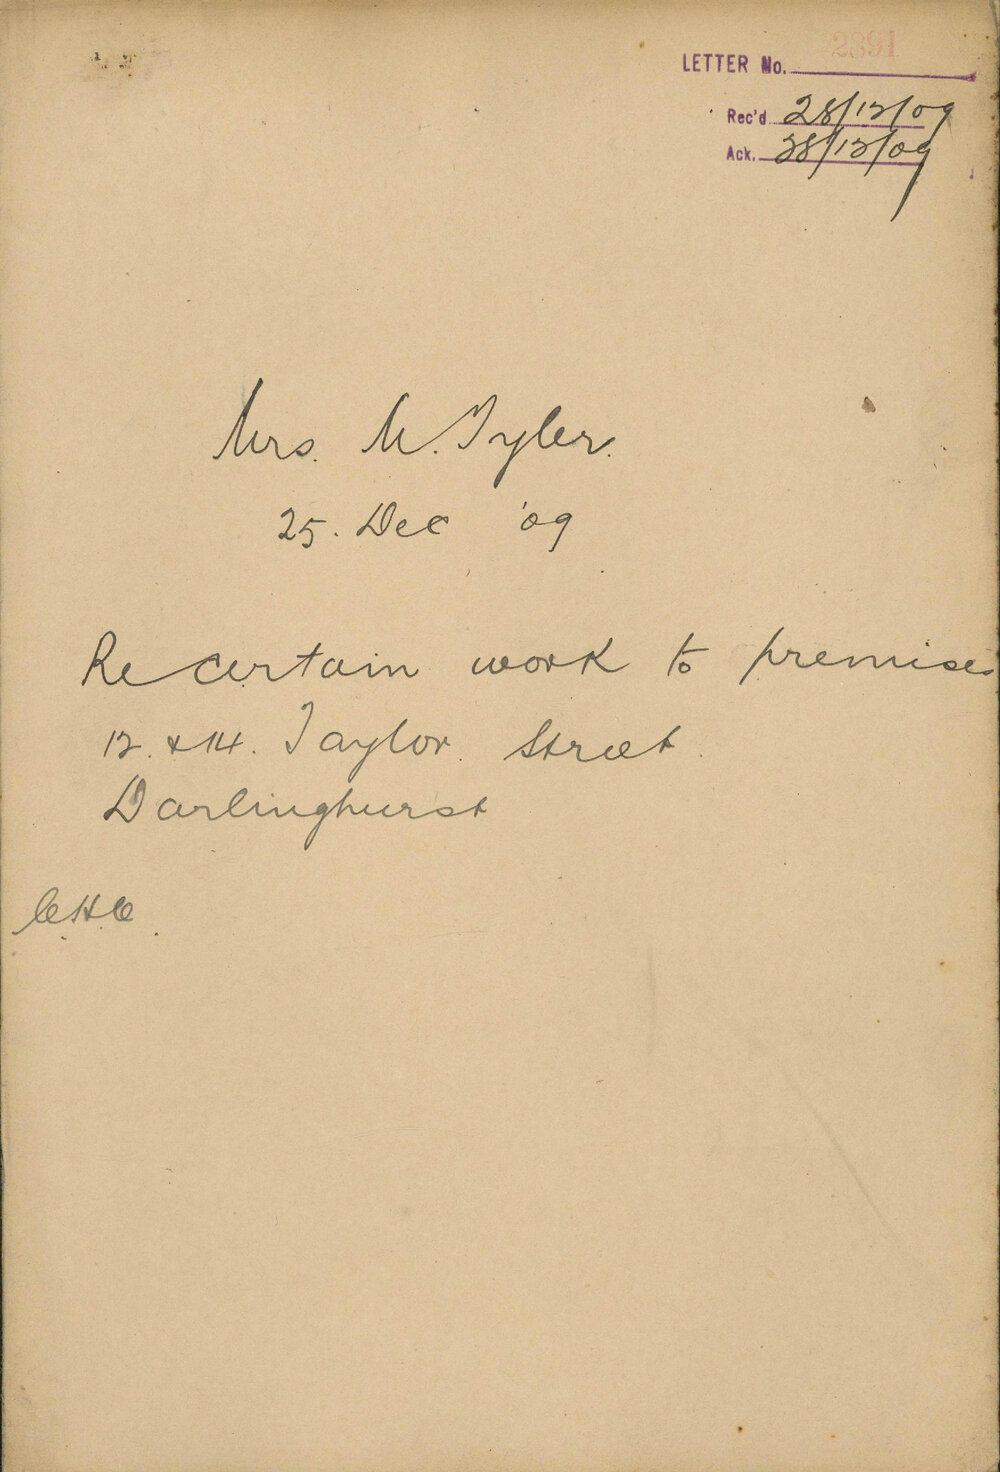 2891
LETTER No.
Rec'd 28/12/09
Ack. 28/12/09
Mrs. M. Tyler.
25. Dec '09
Re certain work to premises
12. & 14. Taylor Street
Darlinghurst